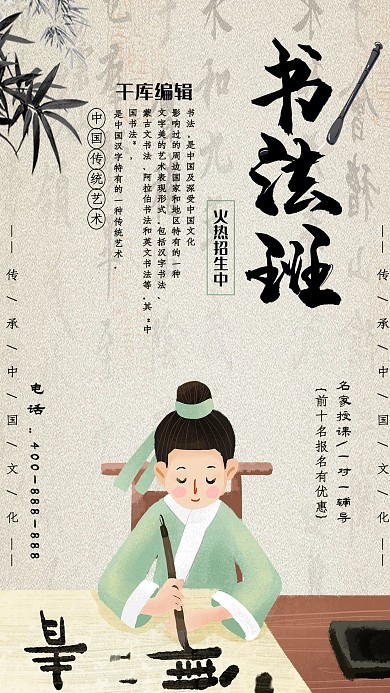 书法班
火热招生中
千库编辑
书法，是中国及深受中国文化
影响过的周边国家和地区特有的一种
文字美的艺术表现形式。包括汉字书法、
蒙古文书法、阿拉伯书法和英文书法等。其“中
国书法”，
是中国汉字特有的一种传统艺术。
中国传统艺术
传/承/中/国/文/化
传/承/中/国/文/化
名家授课/一对一辅导
(前十名报名有优惠)
电话：400-888-888